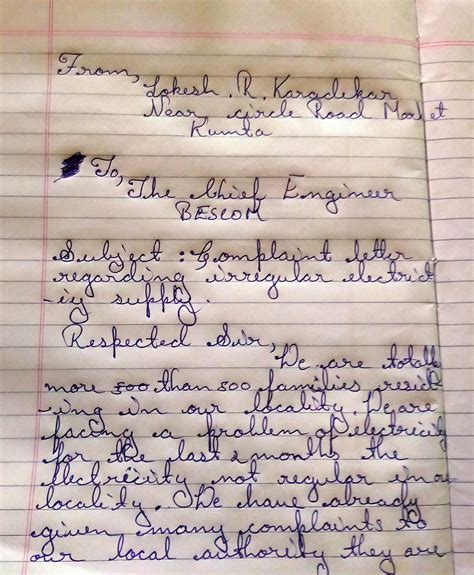 From,
Lokesh . R. Kargdekar
Near circle Road Market
Kumta
To,
The Chief Engineer
BESCOM
Subject : Complaint letter
regarding irregular electrici
-iy supply.
Respected Sir,
We are totally
more 500 than 500 families resid
-ing in our locality. We are
facing a problem of electricity
for the last 2 months the
electricity not regular in ou
locality. We have already
given many complaints to
our local authority they are